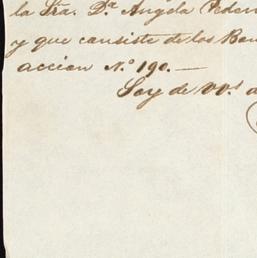 la Sra. Dª Angela Peden
y que consiste de los Ban
accion N.º 190.—
Soy de VVˢ a